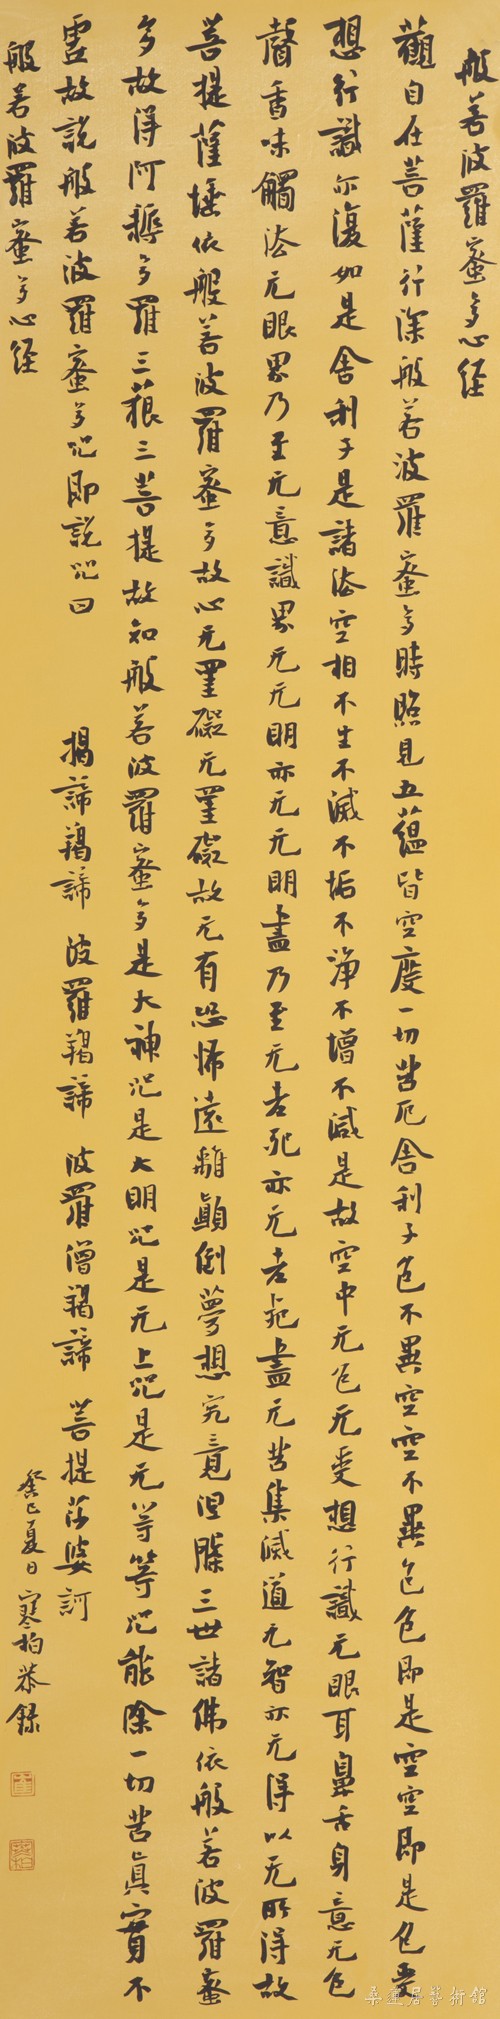 般若波羅蜜多心經
觀自在菩薩行深般若波羅蜜多時照見五蘊皆空度一切苦厄舍利子色不異空空不異色色即是空空即是色受
想行識亦復如是舍利子是諸法空相不生不滅不垢不淨不增不減是故空中无色无受想行識无眼耳鼻舌身意无色
聲香味觸法无眼界乃至无意識界无无明亦无无明盡乃至无老死亦无老死盡无苦集滅道无智亦无得以无所得故
菩提薩埵依般若波羅蜜多故心无罣礙无罣礙故无有恐怖遠離顛倒夢想究竟涅槃三世諸佛依般若波羅蜜
多故得阿耨多羅三藐三菩提故知般若波羅蜜多是大神咒是大明咒是无上咒是无等等咒能除一切苦真實不
虛故說般若波羅蜜多咒即說咒曰 揭諦羯諦 波羅羯諦 波羅僧羯諦 菩提莎婆訶
般若波羅蜜多心經
癸巳夏日寒柏恭錄
桑蓮居藝術館